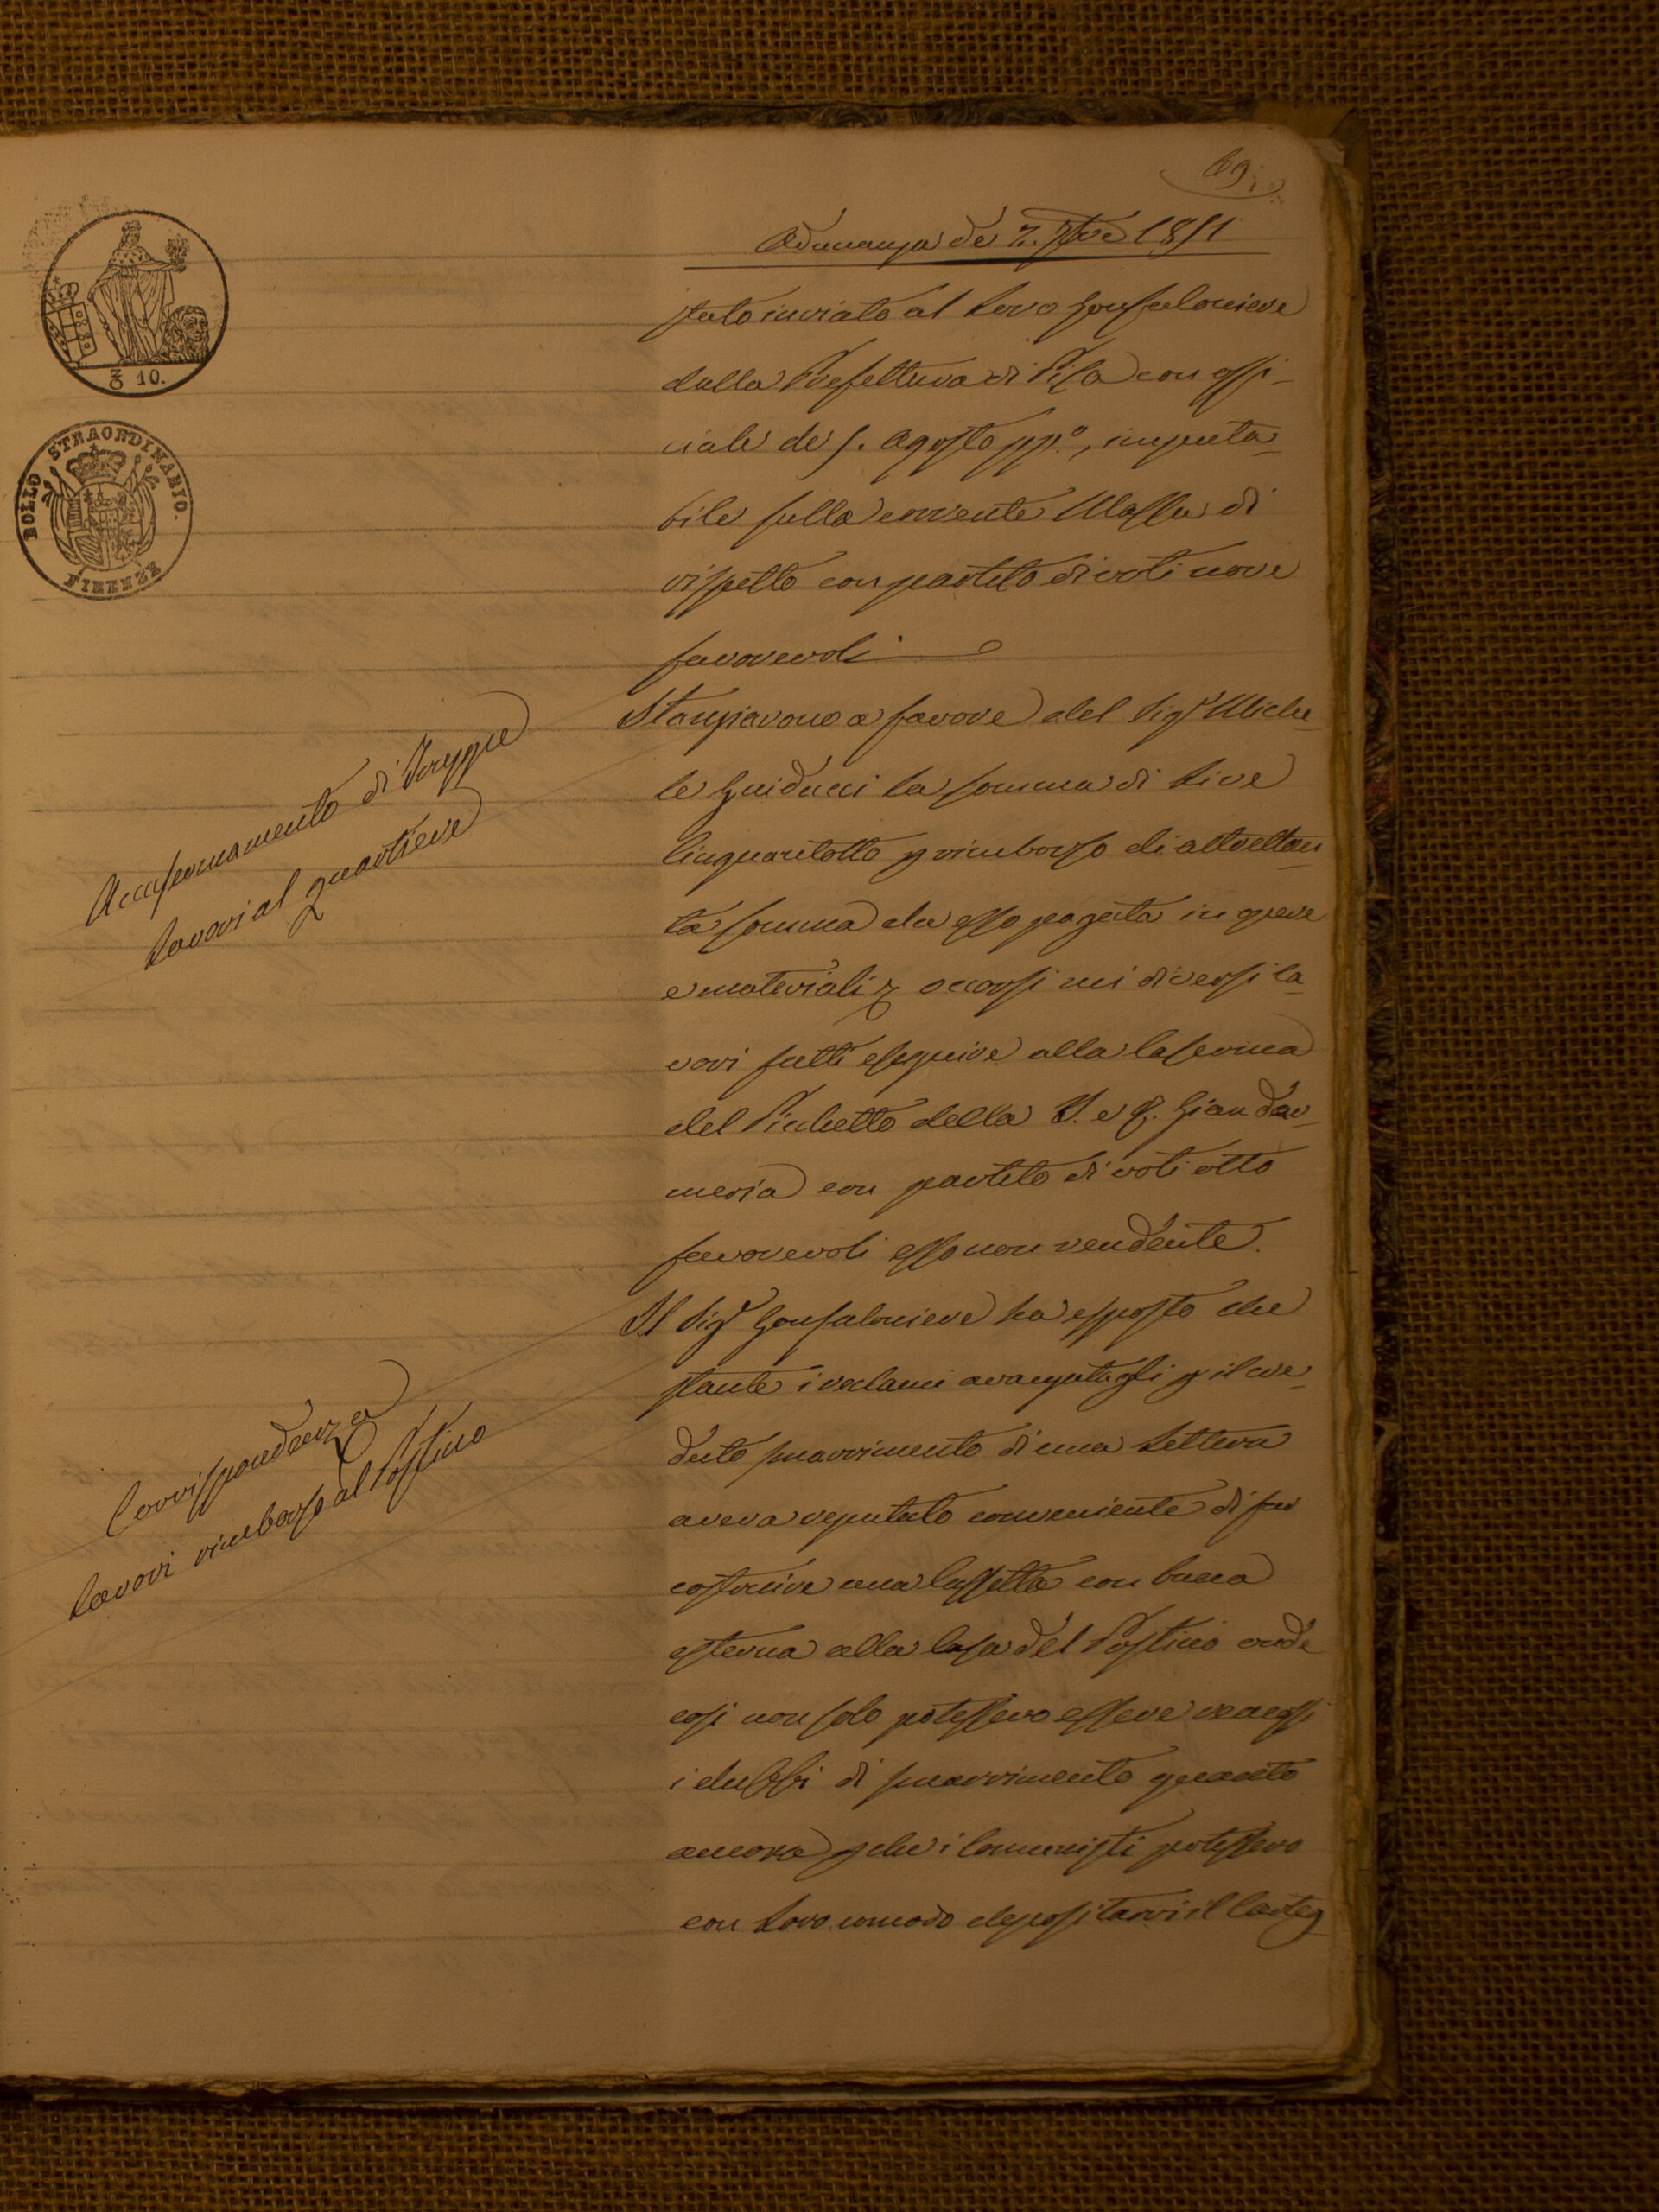 69.
Adunanza de' 7. 7bre 1851
stato inviato al Loro Gonfaloniere
dalla Prefettura di Pisa con offi-
ciale de' 5. Agosto pp.º, imputa-
bile sulla corrente Massa di
rispetto con partito di voti nove
favorevoli
Stanziarono a favore del Sigr Miche-
le Guiducci la somma di Lire
Cinquantotto p rimborso di altrettan
ta somma da esso pagata in opere
e materiali occorsi nei diversi la-
vori fatti eseguire alla Caserma
del Picchetto della I. e R. Giandar-
meria con partito di voti otto
favorevoli esso non rendente.
Il Sigr Gonfaloniere ha esposto che
stante i reclami avanzatigli p il cre-
duto smarrimento di una Lettera
aveva reputato conveniente di far
costruire una Cassetta con buca
esterna alla Casa del Postino onde
cosi non solo potessero essere rimossi
i dubbi di smarrimento quanto
ancora p che i Comunisti potessero
con Loro comodo depositarvi il Carteg-
Accasermamento di Truppe
Lavori al quartiere
Corrispondenza
Lavori rimborso al Postino
10.
BOLLO STRAORDINARIO.
FIRENZE